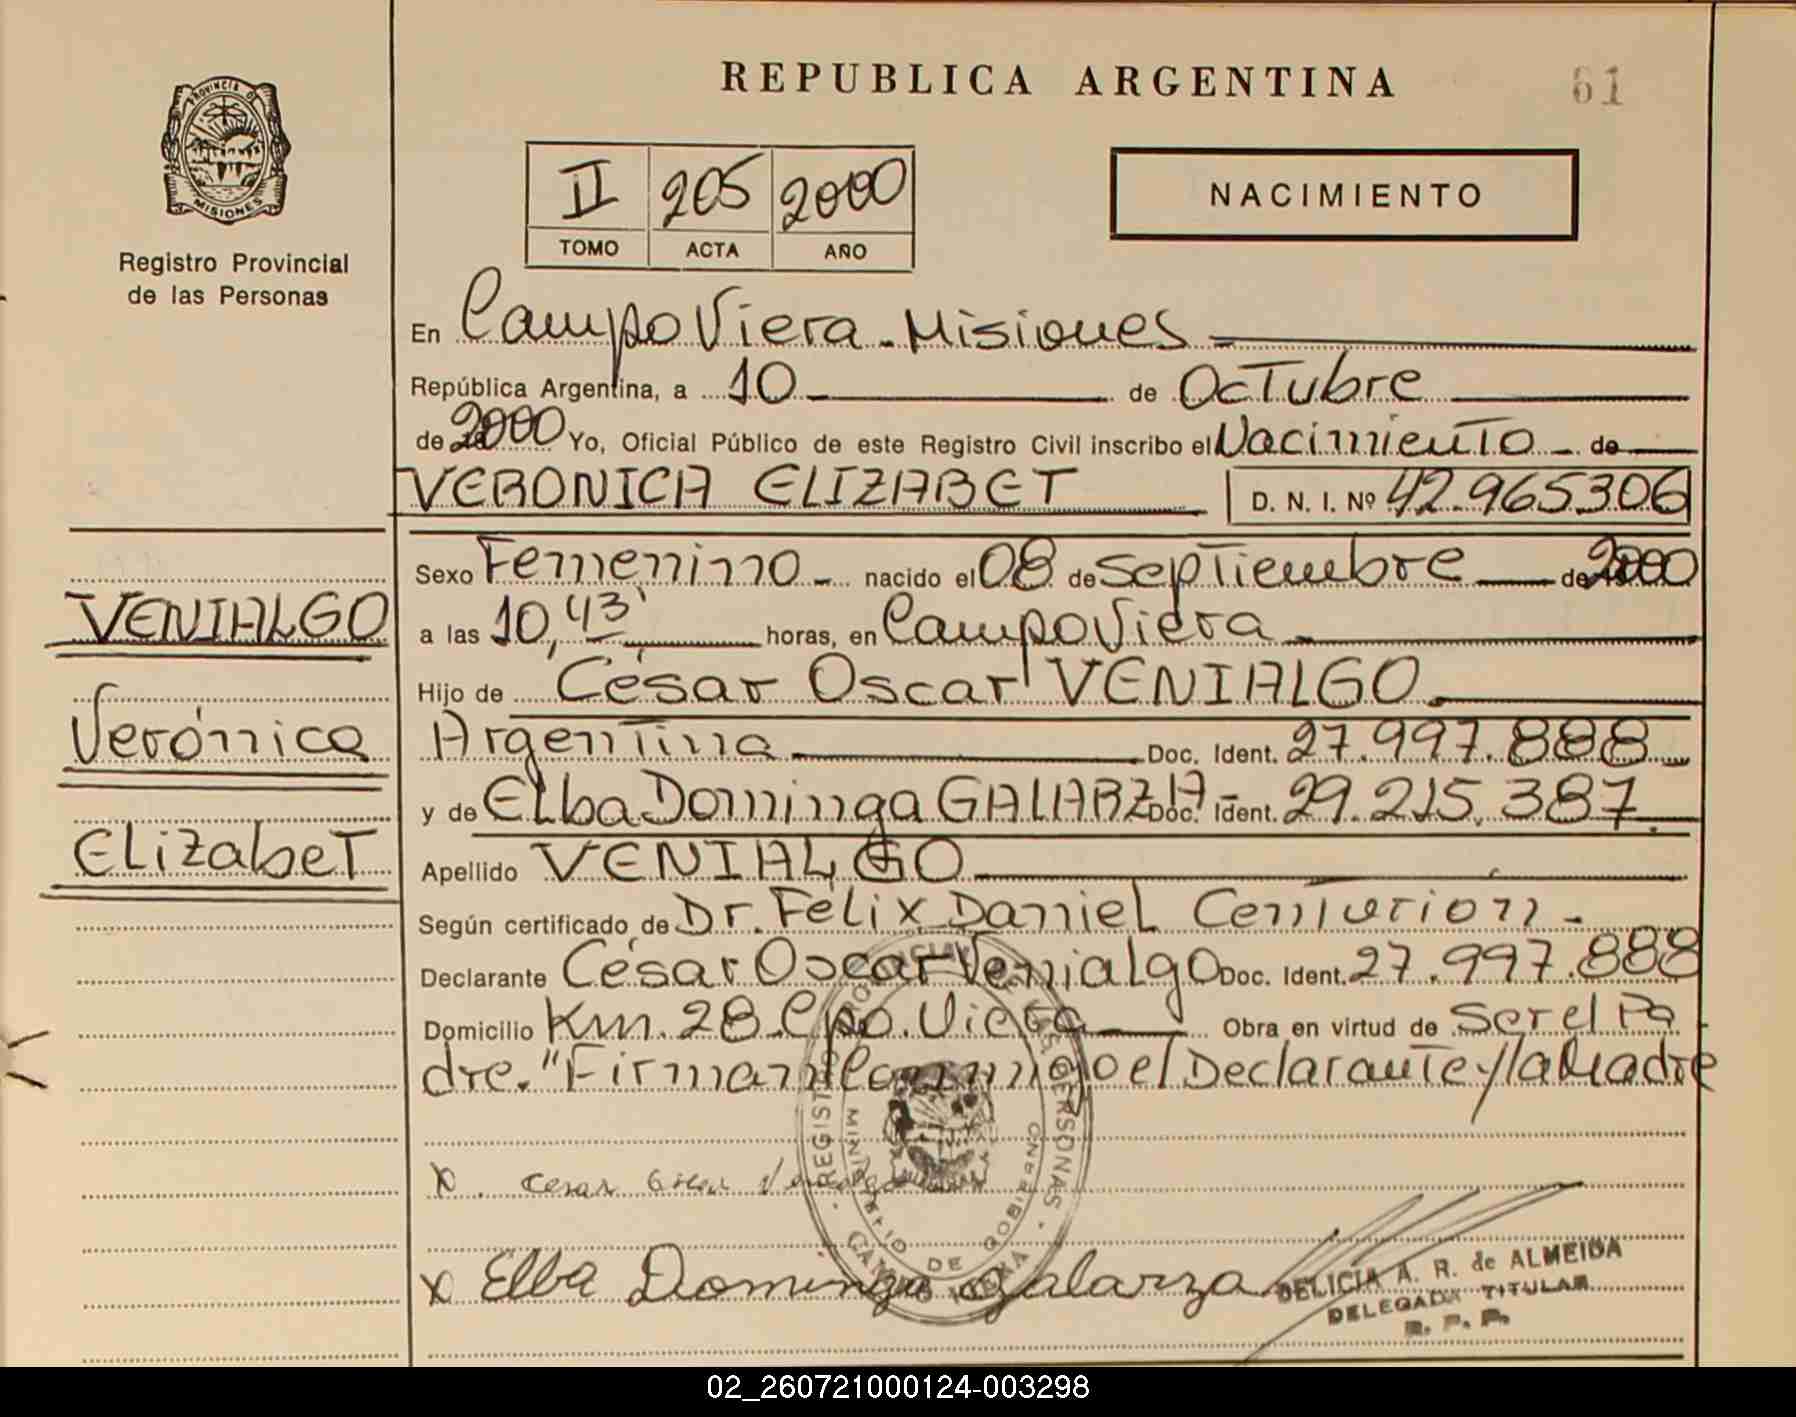 REPUBLICA ARGENTINA
61
PROVINCIA DE
MISIONES
Registro Provincial
de las Personas
II 205 2000
TOMO ACTA AÑO
NACIMIENTO
En Campo Viera - Misiones
República Argentina, a 10 de Octubre
de 2000 Yo, Oficial Público de este Registro Civil inscribo el Nacimiento de
VERONICA ELIZABET D. N. I. Nº 42.965.306
Sexo Femenino nacido el 08 de Septiembre de 2000
a las 10,43' horas, en Campo Viera
Hijo de César Oscar VENIALGO
Argentina Doc. Ident. 27.997.888
y de Elba Dominga GALARZA Doc. Ident. 29.215.387
Apellido VENIALGO
Según certificado de Dr. Felix Daniel Centurión
Declarante César Oscar Venialgo Doc. Ident. 27.997.888
Domicilio Km. 28 Cpo. Viera Obra en virtud de Ser el Pa
dre. "Firman Conmigo el Declarante y la Madre
VENIALGO
Verónica
Elizabet
x. Cesar Oscar Venialgo
x Elba Dominga galarza
REGISTRO PROVINCIAL DE LAS PERSONAS
MINISTERIO DE GOBIERNO
CAMPO VIERA
DELICIA A. R. de ALMEIDA
DELEGADA TITULAR
R. P. P.
02_260721000124-003298